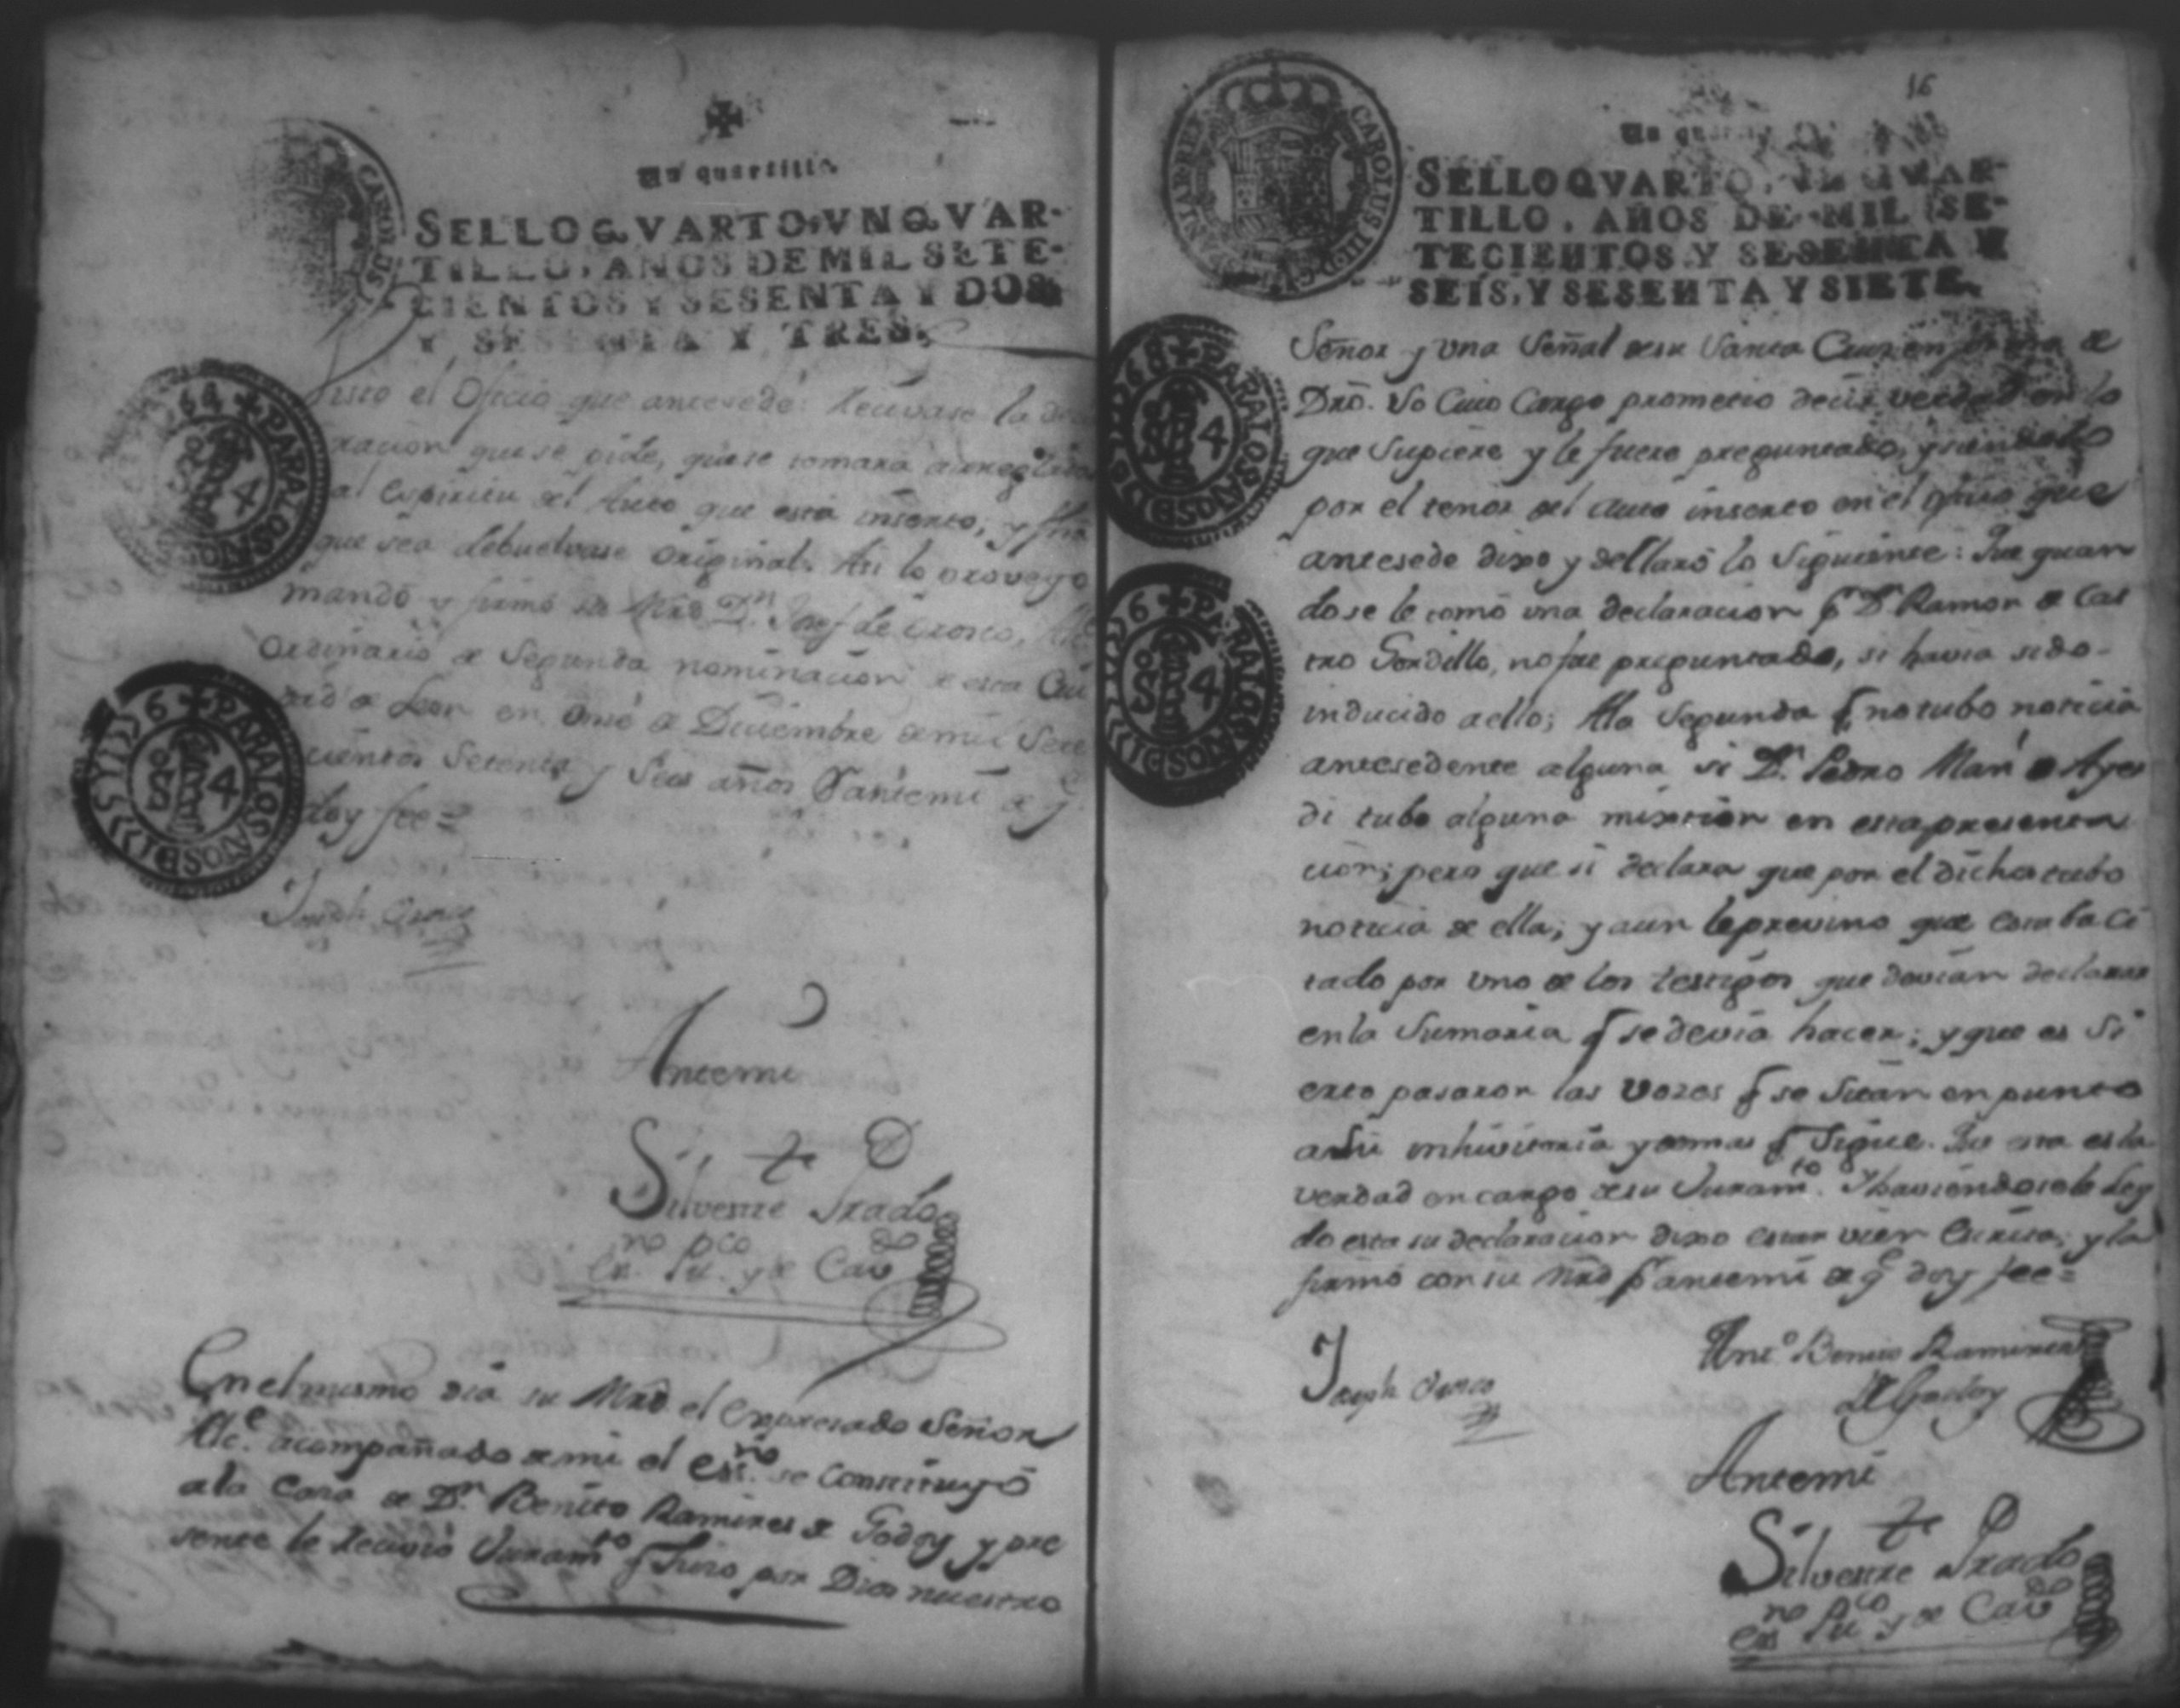 Un quartillo.
SELLO QVARTO, VN QVAR-
TILLO, AÑOS DE MIL SETE-
CIENTOS Y SESENTA Y DOS
Y SESENTA Y TRES.
Visto el Oficio que antesede: Recivase la de
racion que se pide, que se tomara arreglada
al Espiritu del Auto que está inserto, y ffho
que sea debuelvase original. Asi lo proveyo
mandó y firmó su Mrd Dn. Josef de Orosco, Alce
Ordinario de Segunda nominacion de esta Ciu
dad de Leon en Onse de Diciembre de mil Sete
cientos Setenta y Seis años Pr antemi de q
doy fee=
Joseph Orosco
Antemi
Silvestre Prado
Esno Puco y de Cavdo
En el mismo dia su Mrd. el Expresado Señor
Alce. acompañado de mi el Esno. se constituyó
a la Casa de Dn. Benito Ramires de Godoy y pre
sente le Recivió Juramto q Juro por Dios nuestro
16
Un quartillo
SELLO QVARTO, VN QVAR-
TILLO, AÑOS DE MIL SE-
TECIENTOS Y SESENTA Y
SEIS, Y SESENTA Y SIETE.
CAROLUS III D G HISPANIAR REX
PARA LOS AÑOS DE
Señor y una Señal de su Santa Cruz en forma de
Dro. So Cuio Cargo prometio decir verdad en lo
que Supiere y le fuere preguntado, y siendolo
por el tenor del Auto inserto en el oficio que
antesede dixo y declaró lo Siguiente: Que quan
do se le tomó una declaracion pr Dn Ramon de Cas
tro Gordillo, no fue preguntado, si havia sido
inducido a ello; A la Segunda q no tubo noticia
antesedente alguna si Dn. Pedro Mari de Ayer
di tubo alguna mixtion en esta presenta
cion; pero que si declara que por el dicho tubo
noticia de ella; y aun le previno que estaba ci
tado por uno de los testigos que devian declarar
en la Sumaria q se devia hacer; y que es Si
erto pasaron las vozes q se Sitan en punto
a su inhivitoria y demas q Sigue. Que esta es la
verdad en cargo de su Juramto. Y haviendosele Ley
do esta su declaracion dixo estar vien Escrita; y la
firmó con su Mrd pr antemi de q doy fee=
Joseph Orosco
Anto. Benito Ramires
de Godoy
Antemi
Silvestre Prado
Esno Puco y de Cavdo